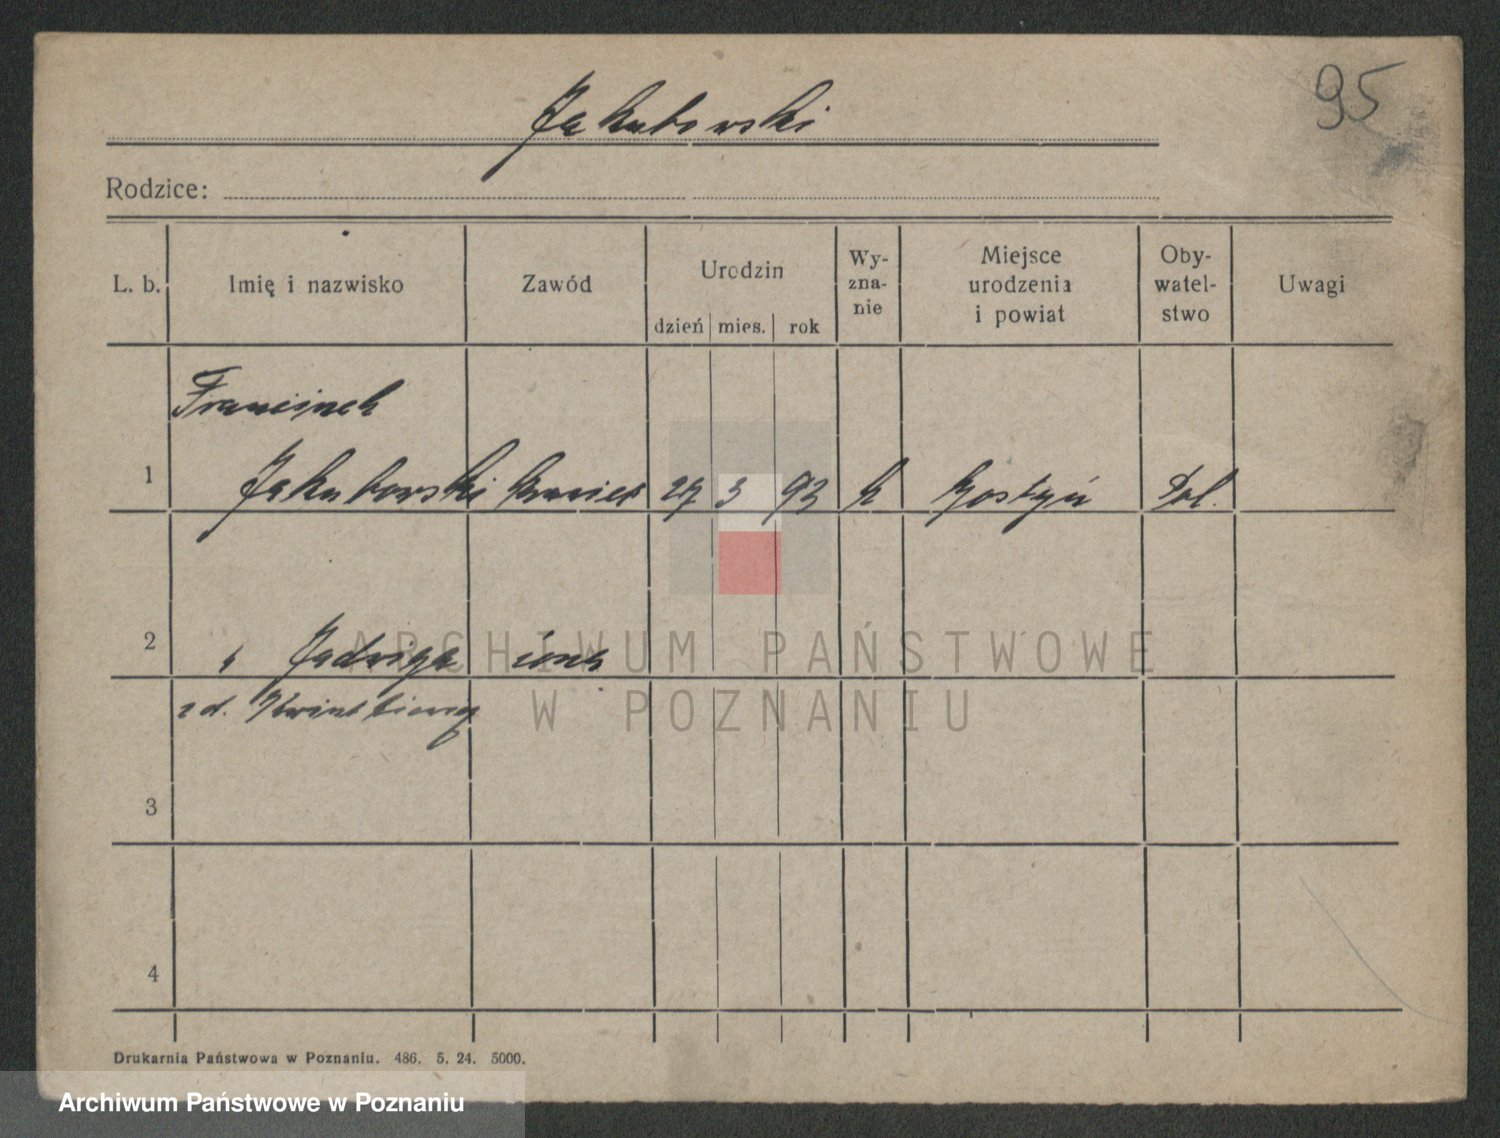 95
Jakubowski
Rodzice:
L. b. Imię i nazwisko Zawód Urodzin dzień mies. rok Wy-zna-nie Miejsce urodzenia i powiat Oby-watel-stwo Uwagi
Franciszek
1 Jakubowski krawiec 27 3 93 k Gostyń Pol.
2 " Jadwiga żona
zd.
3
4
Drukarnia Państwowa w Poznaniu. 486. 5. 24. 5000.
ARCHIWUM PAŃSTWOWE
W POZNANIU
Archiwum Państwowe w Poznaniu